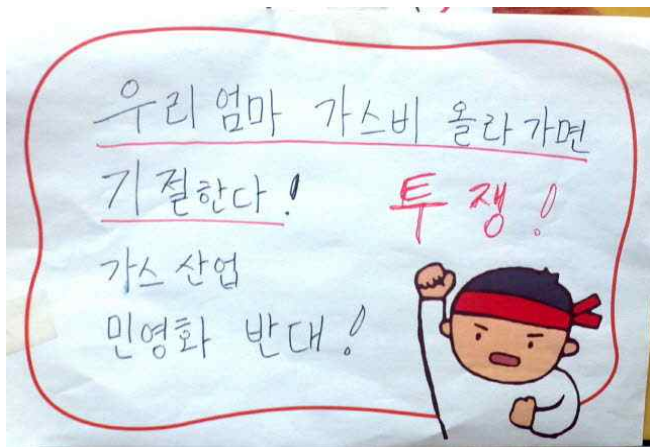 우리 엄마 가스비 올라가면
기절한다! 투쟁!
가스 산업
민영화 반대!